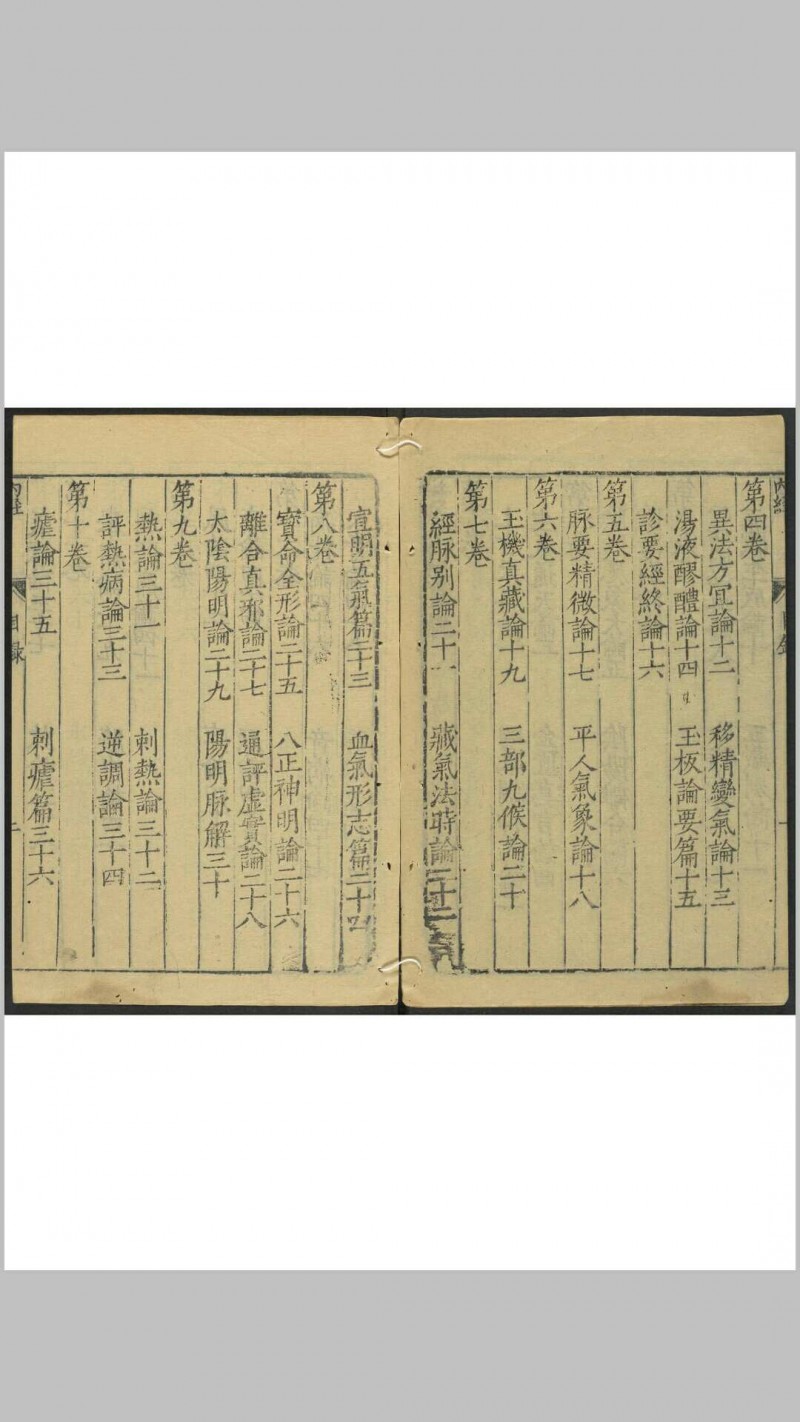 第四卷
異法方宜論十二 移精變氣論十三
湯液醪醴論十四 玉板論要篇十五
診要經終論十六
第五卷
脉要精微論十七 平人氣象論十八
第六卷
玉機真藏論十九 三部九候論二十
第七卷
經脉别論二十一 藏氣法時論二十二
宣明五氣篇二十三 血氣形志篇二十四
第八卷
寳命全形論二十五 八正神明論二十六
離合真邪論二十七 通評虚實論二十八
太陰陽明論二十九 陽明脉解三十
第九卷
熱論三十一 刺熱論三十二
評熱病論三十三 逆調論三十四
第十卷
瘧論三十五 刺瘧篇三十六
內經 目录